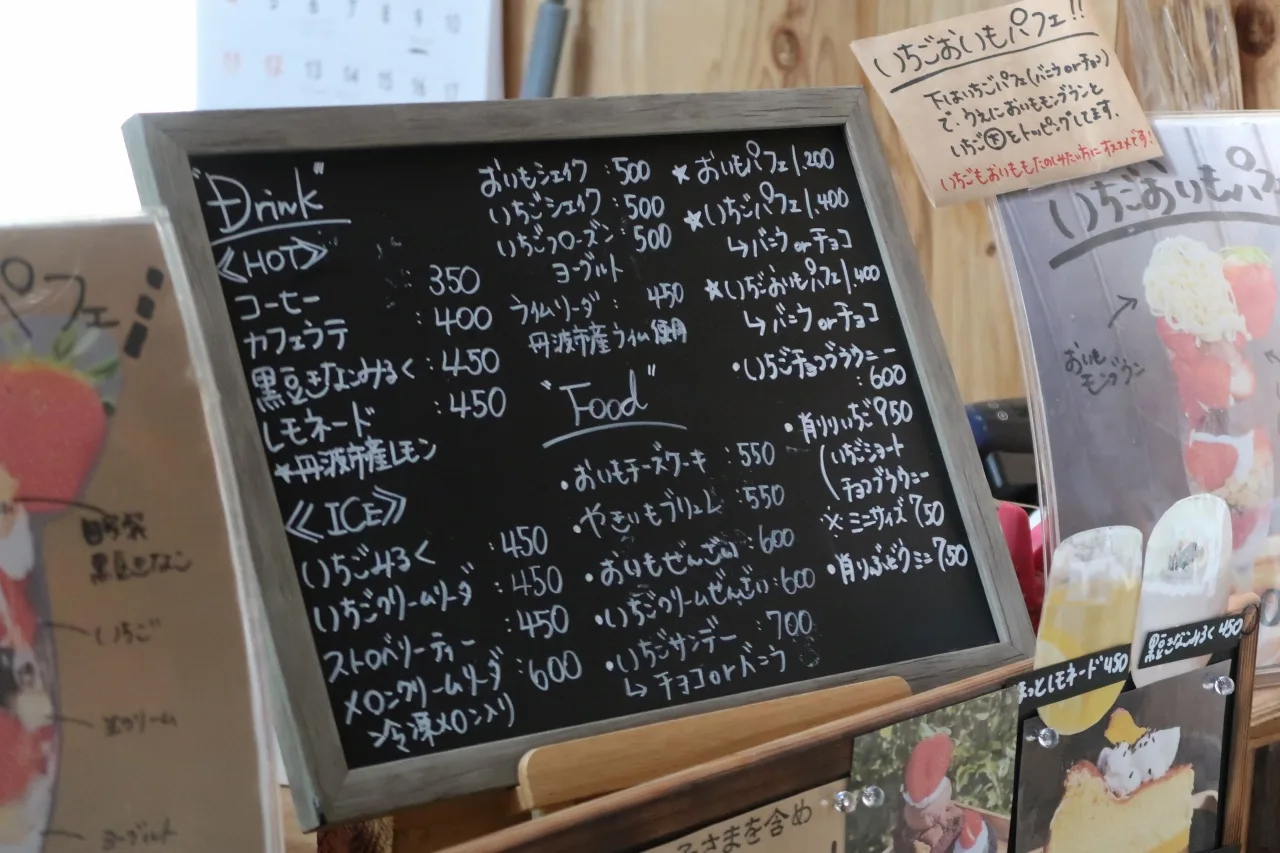 5 6 7 8 9 10
11 12 13 14 15 16 17
いちごおいもパフェ!!
下はいちごパフェ(バニラorチョコ)
で、うえにおいもモンブランと
いちご をトッピングしてます.
いちごもおいももたのしみたい方にオススメです!
"Drink"
《HOT》
コーヒー :350
カフェラテ :400
黒豆きなこみるく :450
レモネード :450
★丹波市産レモン
《ICE》
いちごみるく :450
いちごクリームソーダ :450
ストロベリーティー :450
メロンクリームソーダ :600
冷凍メロン入り
おいもシェイク :500
いちごシェイク :500
いちごフローズン :500
ヨーグルト
ライムソーダ : 450
丹波市産ライム使用
"Food"
・おいもチーズケーキ :550
・やきいもブリュレ :550
・おいもぜんざい :600
・いちごクリームぜんざい :600
・いちごサンデー :700
↳チョコorバニラ
★おいもパフェ 1,200
★いちごパフェ 1,400
↳バニラorチョコ
★いちごおいもパフェ 1,400
↳バニラorチョコ
・いちごチョコブラウニー
:600
・削りいちご 950
(いちごショート
チョコブラウニー
※ミニサイズ 750
・削りぶどうミニ 750
パフェ
黒豆きなこ
いちご
生クリーム
ヨーグルト
いちごおいもパフ
おいも
モンブラン
ほっとレモネード 450
黒豆きなこみるく 450
さまを含め